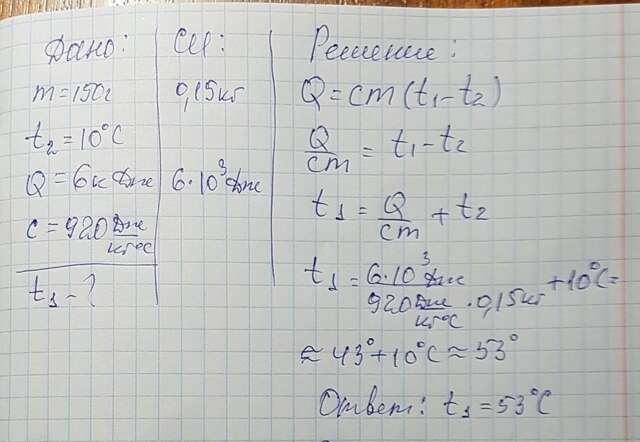 Дано:
m=150г
t₂=10°C
Q=6кДже
c=920 Дже/кг°C
t₁-?
СИ:
0,15кг
6·10³Дже
Решение:
Q=cm(t₁-t₂)
Q/cm = t₁-t₂
t₁=Q/cm+t₂
t₁=6·10³Дже/920Дже/кг°C·0,15кг+10°C=
≈43°+10°C≈53°
Ответ: t₁=53°C